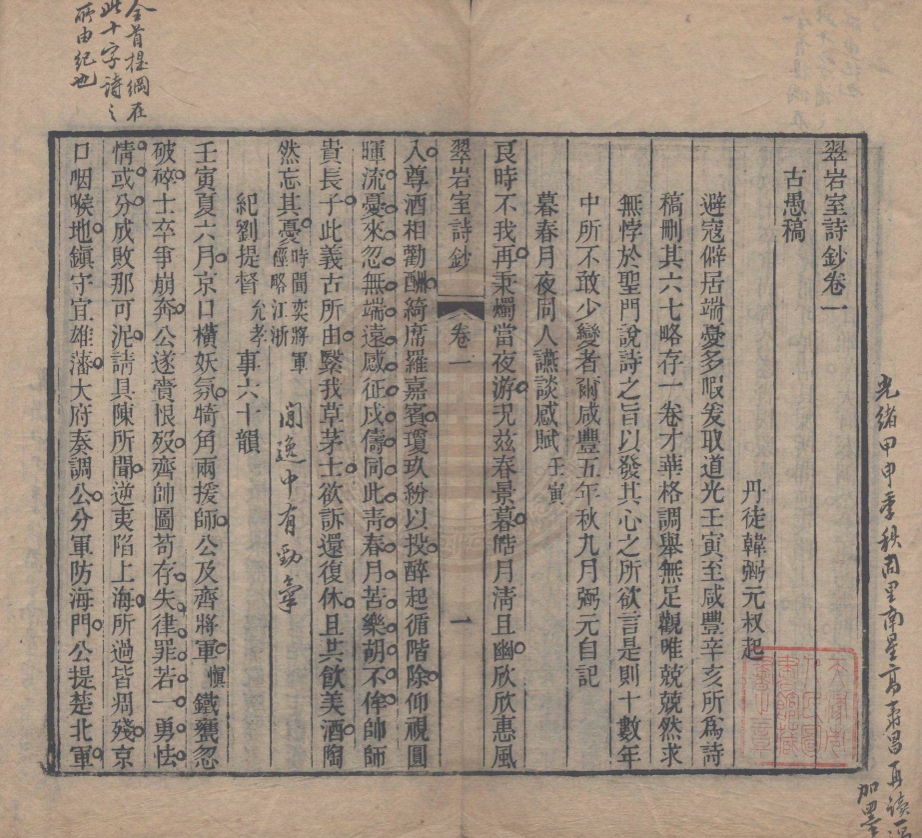 翠岩室詩鈔卷一
古愚稿
丹徒韓弼元叔起
避寇僻居端憂多暇爰取道光壬寅至咸豐辛亥所爲詩
稿刪其六七略存一卷才華格調舉無足觀唯兢兢然求
無悖於聖門說詩之旨以發其心之所欲言是則十數年
中所不敢少變者爾咸豐五年秋九月弼元自記
暮春月夜同人讌談感賦壬寅
良時不我再秉燭當夜游況茲春景暮皓月淸且幽欣欣惠風
翠岩室詩鈔 卷一 一
入尊酒相勸酬綺席羅嘉賓瓊玖紛以投醉起循階除仰視圓
暉流憂來忽無端遠感征戍儔同此靑春月苦樂胡不侔帥師
貴長子此義古所由繄我草茅士欲訴還復休且共飲美酒陶
然忘其憂時聞奕將軍經略江浙
閒逸中有勁氣
紀劉提督允孝事六十韻
壬寅夏六月京口橫妖氛犄角兩援師公及齊將軍愼鐵甕忽
破碎士卒爭崩奔公遂賫恨歿齊帥圖苟存失律罪若一勇怯
情或分成敗那可泥請具陳所聞逆夷陷上海所過皆凋殘京
口咽喉地鎭守宜雄藩大府奏調公分軍防海門公提楚北軍
全首提綱在
此十字詩之
所由紀也
光緒甲申季秋同里南星高
再讀一
加墨